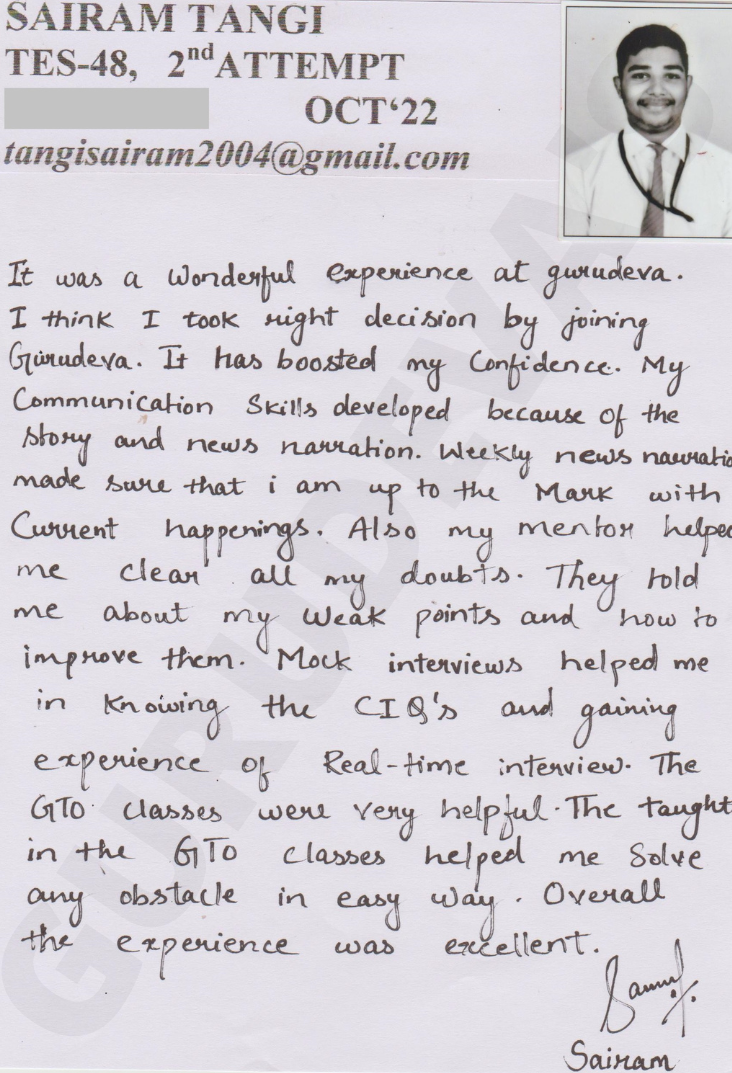 SAIRAM TANGI
TES-48, 2nd ATTEMPT
OCT‘22
tangisairam2004@gmail.com
It was a wonderful experience at gurudeva.
I think I took right decision by joining
Gurudeva. It has boosted my Confidence. My
Communication Skills developed because of the
story and news narration. Weekly news narratio
made sure that i am up to the Mark with
Current happenings. Also my mentor helped
me clear all my doubts. They told
me about my Weak points and how to
improve them. Mock interviews helped me
in Knowing the CIQ's and gaining
experience of Real-time interview. The
GTO classes were very helpful. The taught
in the GTO classes helped me Solve
any obstacle in easy way. Overall
the experience was excellent.
Sairam
GURUDEVA